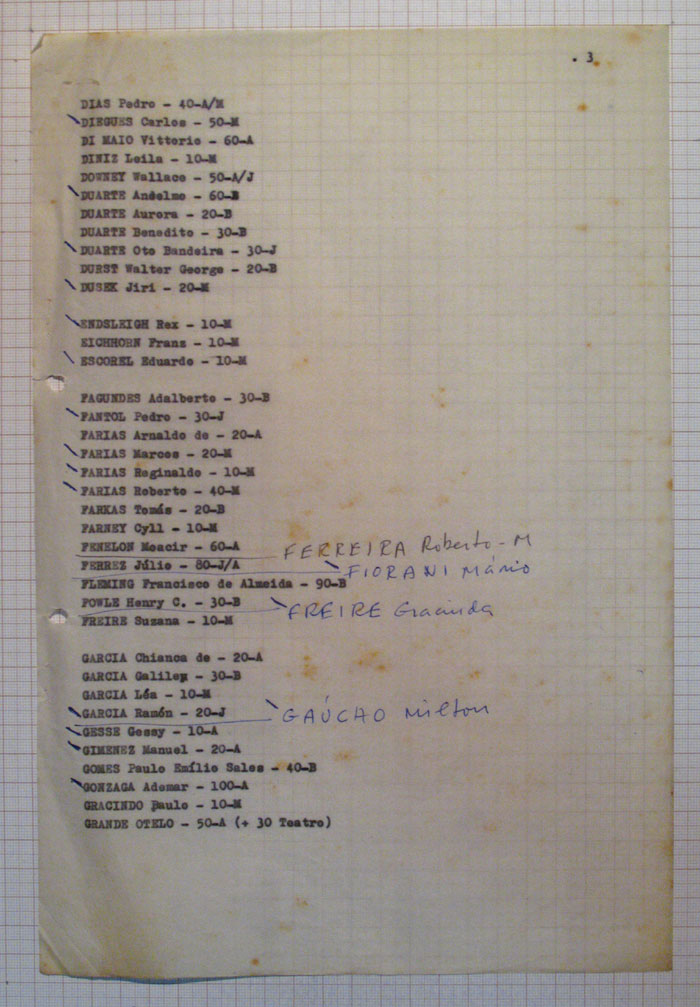 . 3
DIAS Pedro - 40-A/M
DIEGUES Carlos - 50-M
DI MAIO Vittorio - 60-A
DINIZ Leila - 10-M
DOWNEY Wallace - 50-A/J
DUARTE Anselmo - 60-B
DUARTE Aurora - 20-B
DUARTE Benedito - 30-B
DUARTE Oto Bandeira - 30-J
DURST Walter George - 20-B
DUSEK Jiri - 20-M
ENDSLEIGH Rex - 10-M
EICHHORN Franz - 10-M
ESCOREL Eduardo - 10-M
FAGUNDES Adalberto - 30-B
FANTOL Pedro - 30-J
FARIAS Arnaldo de - 20-A
FARIAS Marcos - 20-M
FARIAS Reginaldo - 10-M
FARIAS Roberto - 40-M
FARKAS Tomás - 20-B
FARNEY Cyll - 10-M
FENELON Moacir - 60-A
FERREIRA Roberto - M
FERREZ Júlio - 80-J/A
FIORANI Mário
FLEMING Francisco de Almeida - 90-B
FOWLE Henry C. - 30-B
FREIRE Gracinda
FREIRE Suzana - 10-M
GARCIA Chianca de - 20-A
GARCIA Galileu - 30-B
GARCIA Léa - 10-M
GARCIA Ramón - 20-J
GAÚCHO Milton
GESSE Gessy - 10-A
GIMENEZ Manuel - 20-A
GOMES Paulo Emílio Sales - 40-B
GONZAGA Ademar - 100-A
GRACINDO Paulo - 10-M
GRANDE OTELO - 50-A (+ 30 Teatro)